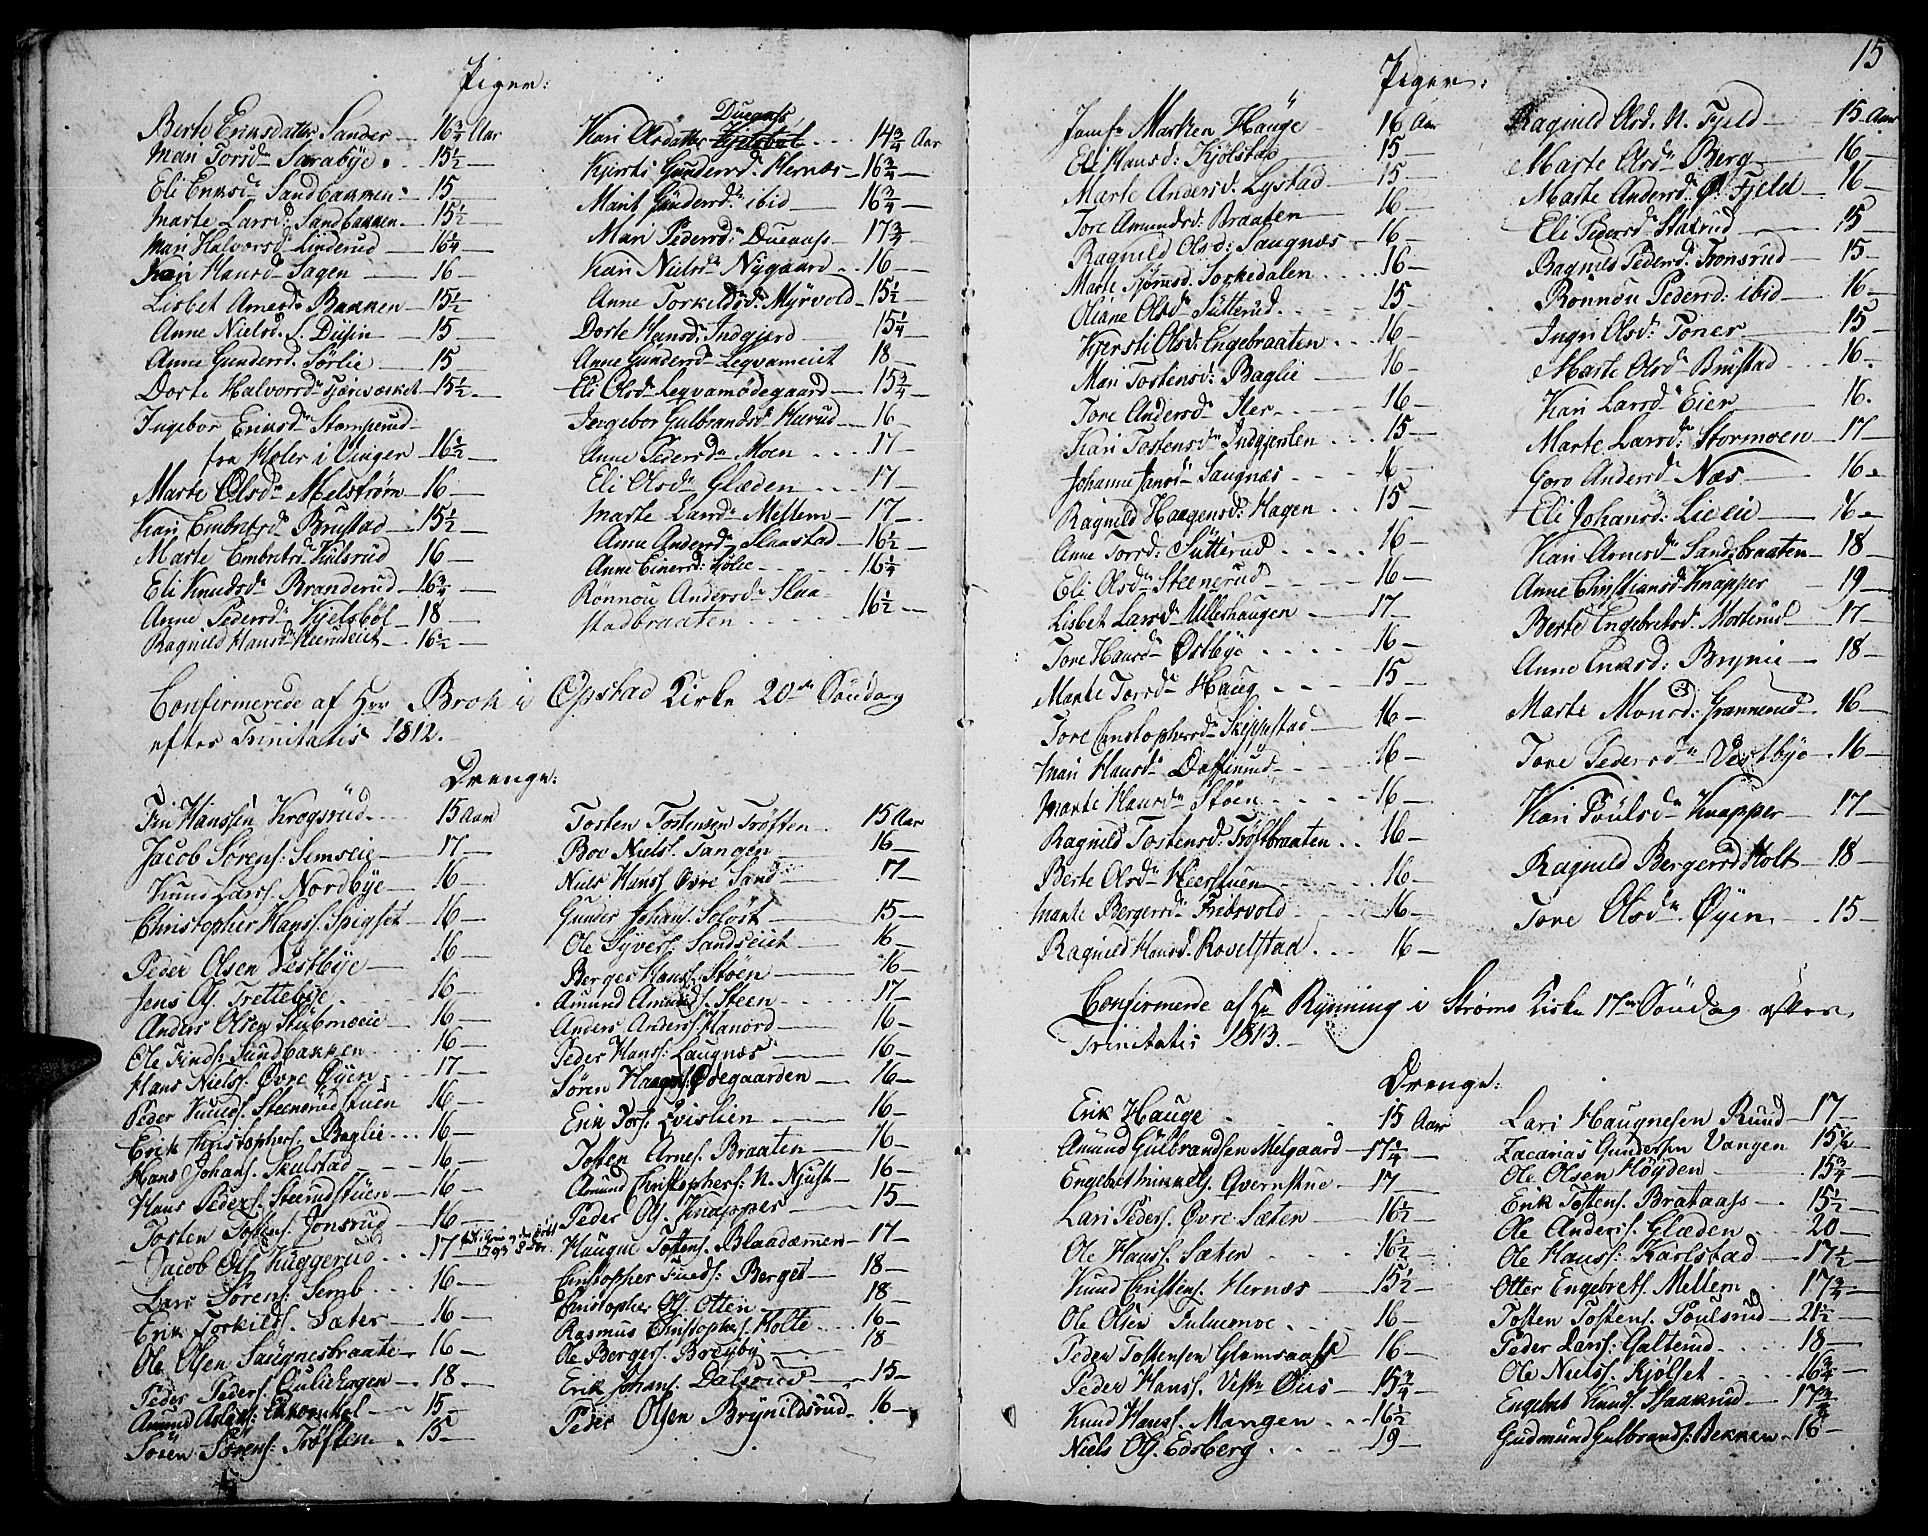 Piger:
Berte Eriksdatter Sander — 16 3/4 Aar
Mari Torsd. Sarabye. 15 1/2 —
Eli Eriksd. Sandbakken — 15 —
Marte Larsd. Sandbakken — 15 1/2 —
Mari Halvorsd. Linderud — 16 1/4 —
Hansd. Sagen — 16 —
Lisbet Arnesd. Bakken — 15 1/2 —
Anne Nielsd. S. Dysin — 15 —
Anne Gundersd. Sørlie — 15 —
Dorte Halvorsd. — 15 1/2 —
Ingebor Eriksd. Stomperud
fra Holer i Vinger — 16 1/2 —
Marte Olsd. Melstrøm — 16 —
Kari Embretsd. Brustad — 15 1/2 —
Marte Embretsd. Kulsrud — 16 —
Eli Knudsd. Branderud — 16 3/4 —
Anne Pedersd. Kjelsbøl — 18 —
Ragnild Hansd. — 16 1/2 —
Kari Olsdatter Dueaass 14 3/4 Aar
Kjersti Gundersd. Hernæs — 16 3/4 —
Marit Gundersd. ibid — 16 3/4 —
Mari Pedersd. Dueaass — 17 3/4 —
Kari Nielsd. Nygaard — 16 —
Anne Torkildsd. Myrvold — 15 1/2 —
Dorte Hansd. Indgjerd — 15 1/4 —
Anne Gundersd. Leqvameiet 18 —
Eli Olsd. Leqvamødegaard — 15 3/4 —
Ingebor Gulbrandsd. Hurud — 16 —
Anne Pedersd. Moen — 17 —
Eli Olsd. Glæden — 17 —
Marte Larsd. Mellem — 17 —
Anne Andersd. Slaastad — 16 1/2 —
Anne Einersd. — 16 1/4
Rønnou Andersd. Slaa-
stadbraaten — 16 1/2 —
Confirmerede af Hrr Brok i Opstad Kirke 20de Søndag
efter Trinitatis 1812.
Drenge:
Fin Hanssen Krogsrud 15 Aar
Jacob Sørens. Semseie — 17 —
Knud Larss. Nordbye — 16 —
Christopher Hanss. Spigset — 16 —
Peder Olsen Vestbye — 16 —
Jens Ols. Trettebye — 16 —
Anders Olsen Stubmoeie — 16 —
Ole Finds. Sundbakken — 16 —
Hans Nielss. Øvre Øyen — 17 —
Peder Knuds. Steenerudstuen 16 —
Erik Christophers. Baglie 16 —
Hans Johans. Skulstad — 16 —
Hans Peders. Steenrudstuen — 16 —
Tosten Tostens. Jonsrud — 16 —
Jacob Ols. Kuggerud 17
Lars Sørens. Semb 16 —
Erik Torkilds. Sæter — 16 —
Ole Olsen Saugnesbraate — 16 —
Peder Peders. Juliehagen — 18 —
Amund — 15 —
Søren Sørens. Trøften 15 —
Tosten Tostensen Trøften 15 Aar
Boe Niels. Tangen 16 —
Niels Hanss. Øvre Sand 17 —
Gunder Johans. Soløst 15 —
Ole Syvers. Sandseiet — 16 —
Berger Hanss. Støen — 16 —
Amund Amunds. Steen 17 —
Anders Anders. Hanord 16 —
Peder Hanss. Laugnæs — 16 —
Søren Haagens. Ødegaarden — 16 —
Erik Tors. Qvislien — 16 —
Tosten Arnes. Braaten — 16 —
Amund Christophers. N. Njust — 16 —
Peder Ols. Knapper — 15 —
Haugne Tostens. Blaadæmen — 17 —
Christopher Finds. Berget — 18 —
Christopher Ols. Otten 18 —
Rasmus Christophs. Holte 16 —
Ole Bergers. Breyby — 18
Erik Johans. Dalsrud — 15 —
Peder Olsen Brynildsrud 16 —
15
Piger:
Jomf. Maren Hauge — 16 Aar
Eli Hansd. Kjølstad 15 —
Marte Andersd. Lystad — 15 —
Tore Amundsd. Braaten 16 —
Ragnild Olsd. Saugnæs 16 —
Marte Sjønsd. Sorkedalen 16 —
Oliane Olsd. Sutterud 15 —
Kjersti Olsd. Engebraaten 16 —
Mari Tostensd. Baglie — 16 —
Tore Andersd. Sler 16 —
Kari Tostensd. Indgjerden 15 —
Johanne Jansd. Saugnæs 16 —
Ragnild Haagensd. Hagen 15 —
Anne Torsd. Sutterud 16 —
Eli Olsd. Steenerud 16 —
Lisbet Larsd. Ulleshaugen — 17 —
Tore Hansd. Østbye 16 —
Marte Torsd. Haug 15 —
Tore Christophersd. Skippestad — 16 —
Mari Hansd. Dafterud 16 —
Marte Hansd. Støen 16 —
Ragnild Tostensd. Trøftbraaten 16 —
Berte Olsd. Heerstuen 16 —
Marte Bergersd. Fredsvold 16 —
Ragnild Hansd. Rovelstad 16 —
Ragnild Olsd. N. Fjeld 15 Aar
Marte Olsd. Berg — 16 —
Marte Andersd. Ø. Fjeld — 16 —
Eli Pedersd. Skatrud — 15 —
Ragnild Pedersd. Tronsrud — 15 —
Rønnou Pedersd. ibid — 16 —
Ingri Olsd. Toner — 15 —
Marte Olsd. Brustad 16 —
Kari Larsd. Eier — 16.
Marte Larsd. Stormoen — 17 —
Goro Andersd. Næs — 16 —
Eli Johansd. Lieeie — 16 —
Kari Arnesd. Sandsbraaten — 18 —
Anne Christiansd. Knapper 19 —
Berte Engebretsd. Morterud — 17 —
Anne Eriksd. Brynie — 18 —
Marte Monsd. Grannerud — 16 —
Tore Pedersd. Vestbye 16 —
Kari Poulsd. Knapper — 17 —
Ragnild Bergersd. Holt — 18 —
Tore Olsd. Øyen 15 —
Confirmerede af Hr Rynning i Strøms Kirke 17de Søndag efter
Trinitatis 1813.
Drenge:
Erik Hauge 15 Aar
Amund Gulbrandsen Melgaard — 17 1/4 —
Engebret Mikkels. Qvernstue — 17 —
Lars Peders. Øvre Sæter — 16 1/2 —
Ole Hanss. Sæter 16 1/2 —
Knud Christens. Hernæs — 15 1/2 —
Ole Olsen Tuluemoe 16 —
Peder Tostensen Glomsaass — 16 —
Peder Hanss. Vestre Øiis — 15 3/4 —
Knud Hanss. Mangen 16 1/2 —
Niels Ols. Edsberg 19 —
Lars Haugnesen Ruud — 17 —
Zacarias Gundersen Vangen 15 1/2 —
Ole Olsen Høyden 15 3/4 —
Erik Tostens. Brataass — 15 1/2 —
Ole Anders. Glæden 20 —
Ole Hanss. Karlstad — 17 1/2 —
Otter Engebrets. Mellem 17 3/4 —
Tosten Tostens. Poulsrud — 21 1/2 —
Peder Lars. Galterud 18 —
Ole Nielss. Kjølset 16 3/4 —
Engebret Knuds. Haakrud — 17 3/4
Gudmund Gulbrands. Bekken 16 —